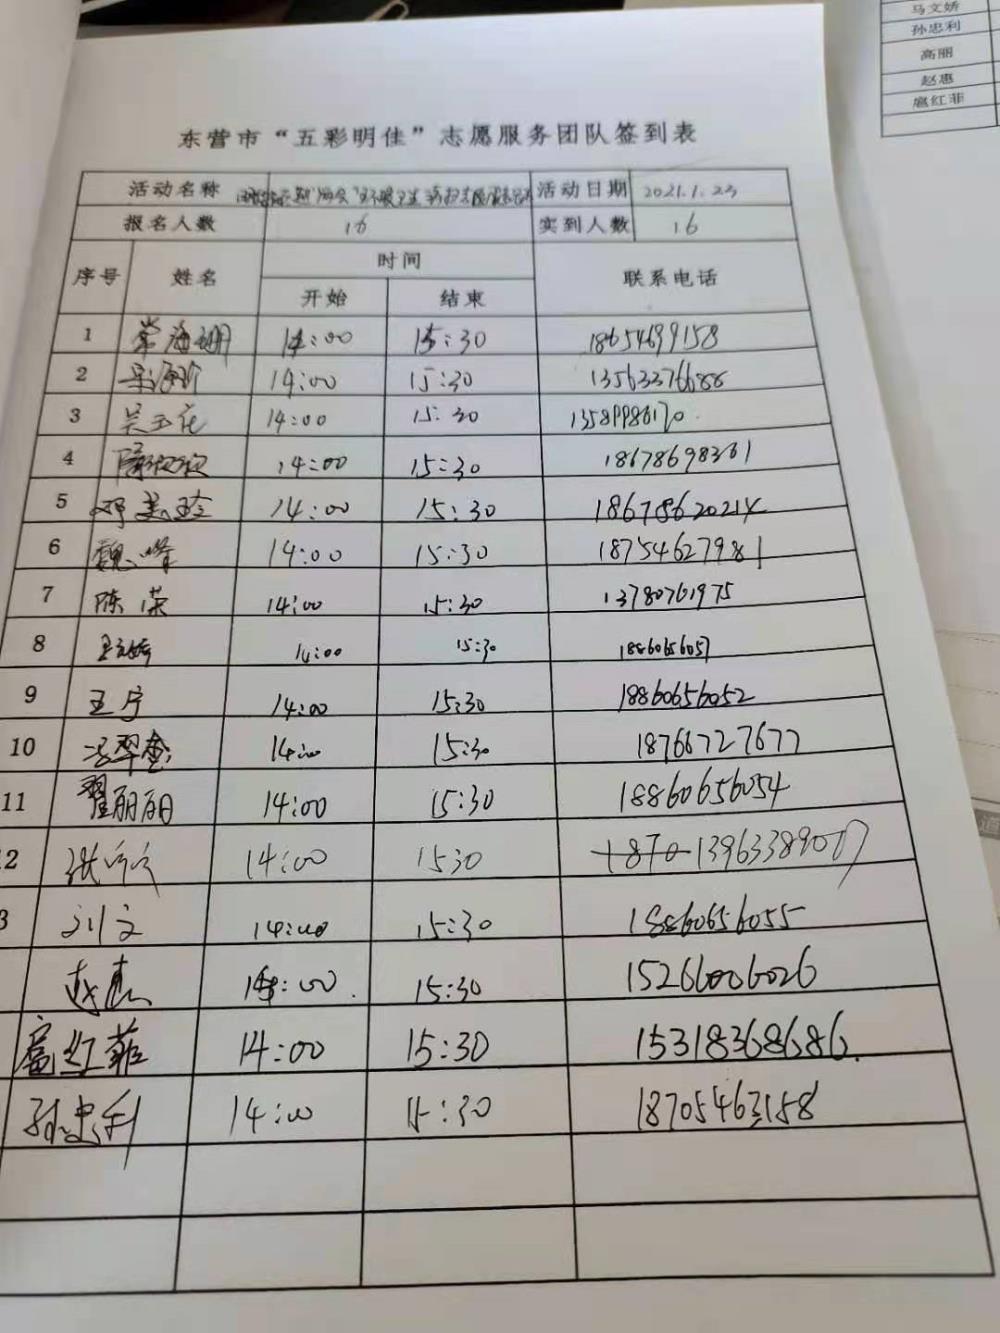 马文娇
孙忠利
高丽
赵惠
扈红菲
东营市“五彩明佳”志愿服务团队签到表
活动名称 活动日期 2021.1.23
报名人数 16 实到人数 16
序号 姓名 时间 联系电话
开始 结束
1 14:00 15:30 18654699158
2 14:00 15:30 13563376688
3 吴玉花 14:00 15:30 13589986170
4 14:00 15:30 18678698361
5 邓美玲 14:00 15:30 18678620214
6 魏峰 14:00 15:30 18754627981
7 陈荣 14:00 15:30 13780761975
8 14:00 15:30 18860656057
9 王宁 14:00 15:30 18860656052
10 14:00 15:30 18766727677
11 翟丽丽 14:00 15:30 18860656054
2 14:00 1530 13963389007
3 刘文 14:00 15:30 18860656055
赵惠 14:00 15:30 15266006026
扈红菲 14:00 15:30 15318368686
孙忠利 14:00 15:30 18705463158
道